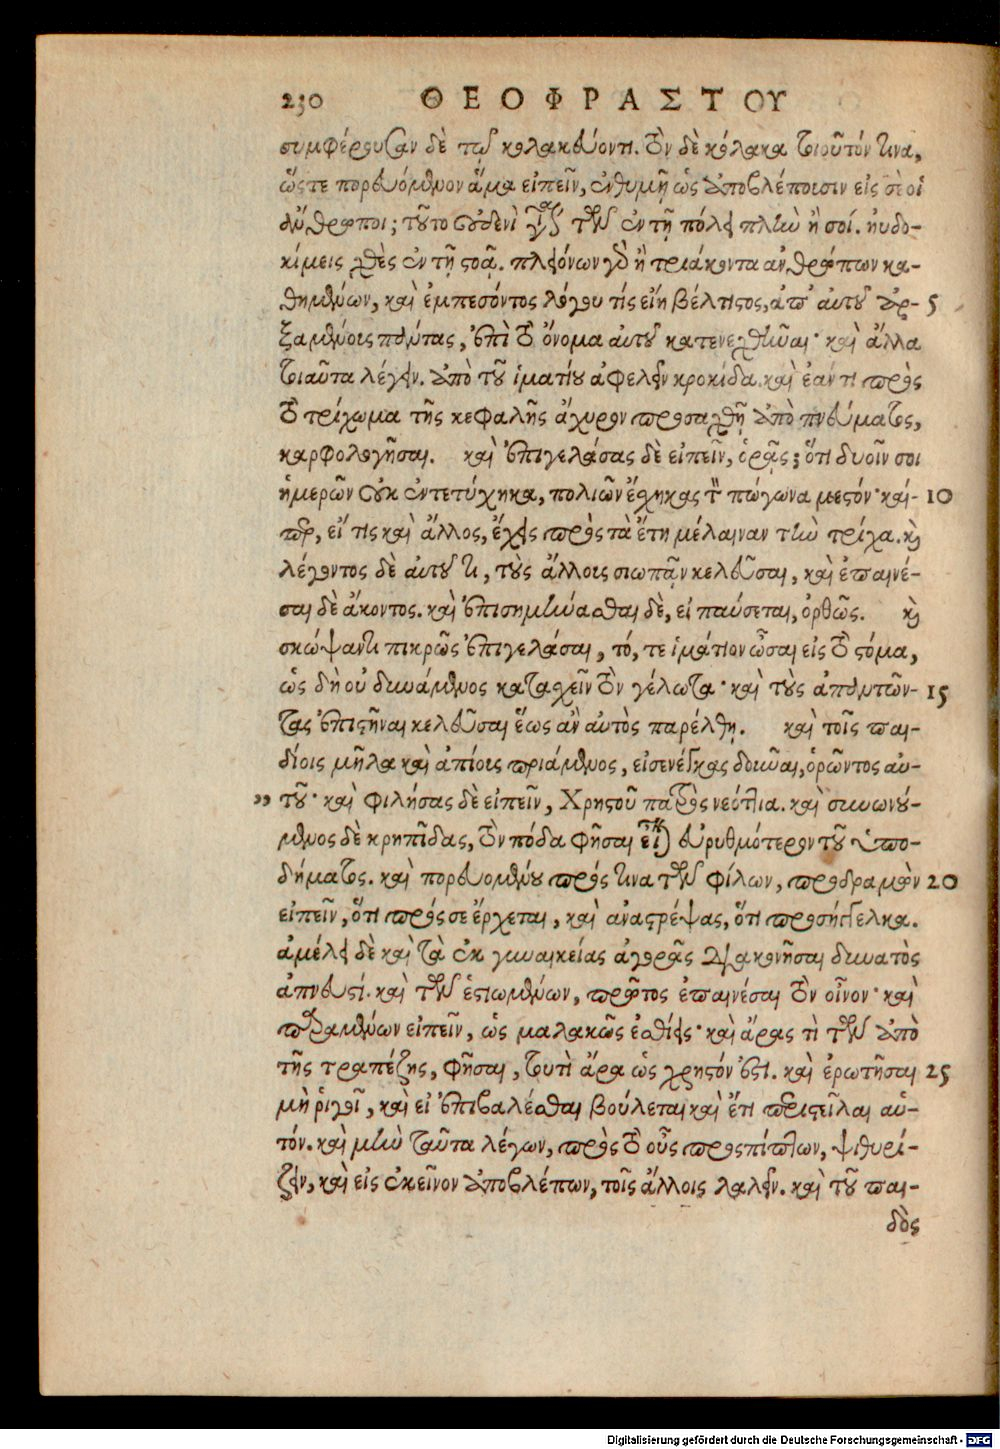 230 ΘΕΟΦΡΑΣΤΟΥ
συμφέρουσαν δὲ τῷ κολακεύοντι. τὸν δὲ κόλακα τοιοῦτόν τινα,
ὥστε πορευόμενον ἅμα εἰπεῖν, ἐνθυμῇ ὡς ἀποβλέπουσιν εἰς σὲ οἱ
ἄνθρωποι; τοῦτο οὐδενὶ τῶν ἐν τῇ πόλει πλὴν ἢ σοί. ηὐδο-
κίμεις χθὲς ἐν τῇ στοᾷ. πλειόνων γὰρ ἢ τριάκοντα ἀνθρώπων κα-
θημένων, καὶ ἐμπεσόντος λόγου τίς εἴη βέλτιστος, ἀπ' αὐτοῦ ἀρ- 5
ξαμένους πάντας, ἐπὶ τὸ ὄνομα αὐτοῦ κατενεχθῆναι· καὶ ἄλλα
τοιαῦτα λέγειν. ἀπὸ τοῦ ἱματίου ἀφελεῖν κροκίδα. καὶ ἐάν τι πρὸς
τὸ τρίχωμα τῆς κεφαλῆς ἄχυρον προσαχθῇ ἀπὸ πνεύματος,
καρφολογῆσαι. καὶ ἐπιγελάσας δὲ εἰπεῖν, ὁρᾷς; ὅτι δυοῖν σοι
ἡμερῶν οὐκ ἐντετύχηκα, πολιῶν ἔσχηκας τὸν πώγωνα μεστόν· καί- 10
περ, εἴ τις καὶ ἄλλος, ἔχεις πρὸς τὰ ἔτη μέλαιναν τὴν τρίχα. καὶ
λέγοντος δὲ αὐτοῦ τι, τοὺς ἄλλους σιωπᾷν κελεῦσαι, καὶ ἐπαινέ-
σαι δὲ ἄκοντος. καὶ ἐπισημήνασθαι δὲ, εἰ παύσεται, ὀρθῶς. καὶ
σκώψαντι πικρῶς ἐπιγελάσαι, τό, τε ἱμάτιον ὦσαι εἰς τὸ στόμα,
ὡς δὴ οὐ δυνάμενος κατασχεῖν τὸν γέλωτα· καὶ τοὺς ἀπαντῶν- 15
τας ἐπιστῆναι κελεῦσαι ἕως ἂν αὐτὸς παρέλθῃ. καὶ τοῖς παι-
δίοις μῆλα καὶ ἀπίους πριάμενος, εἰσενέγκας δοῦναι, ὁρῶντος αὐ-
„ τοῦ· καὶ φιλήσας δὲ εἰπεῖν, Χρηστοῦ πατρὸς νεόττια. καὶ συνωνού-
μενος δὲ κρηπῖδας, τὸν πόδα φῆσαι εἶναι εὐρυθμότερον τοῦ ὑπο-
δήματος. καὶ πορευομένου πρός τινα τῶν φίλων, προδραμὼν 20
εἰπεῖν, ὅτι πρός σε ἔρχεται, καὶ ἀναστρέψας, ὅτι προσήγγελκα.
ἀμέλει δὲ καὶ τὰ ἐκ γυναικείας ἀγορᾶς διακονῆσαι δυνατὸς
ἀπνευστί. καὶ τῶν ἑστιωμένων, πρῶτος ἐπαινέσαι τὸν οἶνον· καὶ
παραμένων εἰπεῖν, ὡς μαλακῶς ἐσθίεις· καὶ ἄρας τὶ τῶν ἀπὸ
τῆς τραπέζης, φῆσαι, τουτὶ ἄρα ὡς χρηστόν ἐστι. καὶ ἐρωτῆσαι 25
μὴ ῥιγοῖ, καὶ εἰ ἐπιβαλέσθαι βούλεται καὶ ἔτι περιστεῖλαι αὐ-
τόν. καὶ μὴν ταῦτα λέγων, πρὸς τὸ οὖς προσπίπτων, ψιθυρί-
ζειν, καὶ εἰς ἐκεῖνον ἀποβλέπων, τοῖς ἄλλοις λαλεῖν. καὶ τοῦ παι-
δὸς
Digitalisierung gefördert durch die Deutsche Forschungsgemeinschaft - DFG